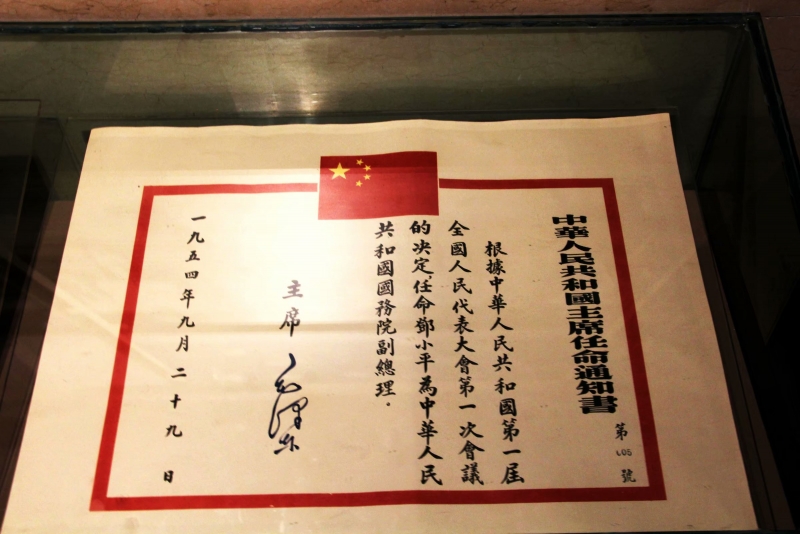 中華人民共和國主席任命通知書
第 號
根據中華人民共和國第一屆
全國人民代表大會第一次會議
的决定,任命鄧小平為中華人民
共和國國務院副總理。
主席 毛澤东
一九五四年九月二十九日